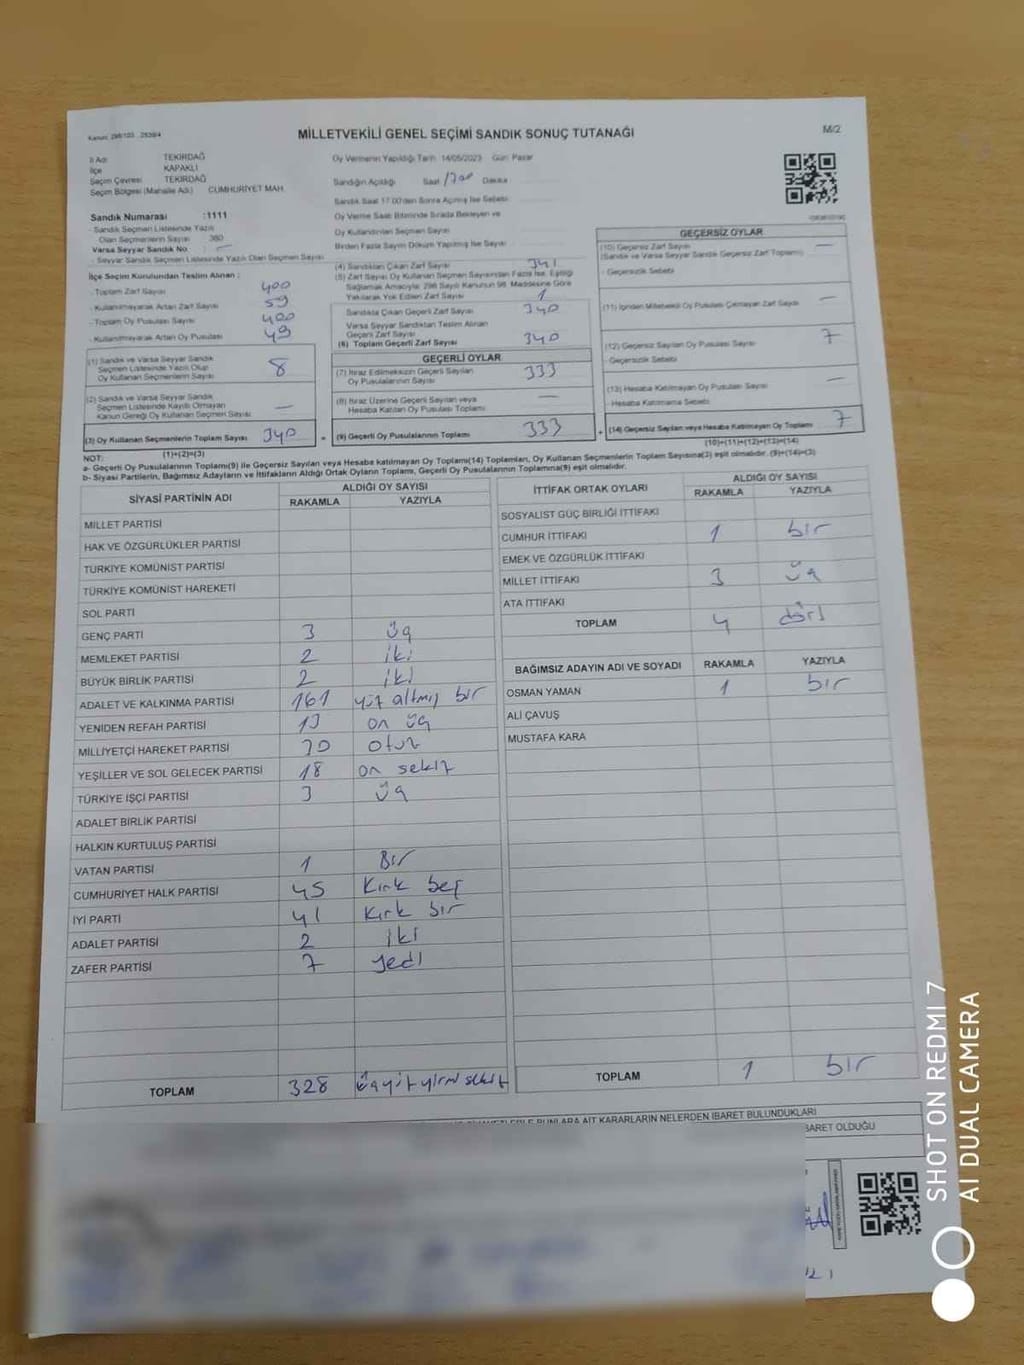 Kanun: 298/103 2839/4
MİLLETVEKİLİ GENEL SEÇİMİ SANDIK SONUÇ TUTANAĞI
M/2
İl Adı TEKİRDAĞ
İlçe KAPAKLI
Seçim Çevresi TEKİRDAĞ
Seçim Bölgesi (Mahalle Adı) CUMHURİYET MAH.
Sandık Numarası :1111
- Sandık Seçmen Listesinde Yazılı
Olan Seçmenlerin Sayısı 380
Varsa Seyyar Sandık No. : —
- Seyyar Sandık Seçmen Listesinde Yazılı Olan Seçmen Sayısı
İlçe Seçim Kurulundan Teslim Alınan :
- Toplam Zarf Sayısı 400
- Kullanılmayarak Artan Zarf Sayısı 59
- Toplam Oy Pusulası Sayısı 400
- Kullanılmayarak Artan Oy Pusulası 49
(1) Sandık ve Varsa Seyyar Sandık
Seçmen Listesinde Yazılı Olup
Oy Kullanan Seçmenlerin Sayısı 8
(2) Sandık ve Varsa Seyyar Sandık
Seçmen Listesinde Kayıtlı Olmayan
Kanun Gereği Oy Kullanan Seçmen Sayısı —
(3) Oy Kullanan Seçmenlerin Toplam Sayısı 340
(1)+(2)=(3)
Oy Vermenin Yapıldığı Tarih: 14/05/2023 Gün: Pazar
Sandığın Açıldığı Saat Dakika
Sandık Saat 17.00'den Sonra Açılmış İse Sebebi
Oy Verme Saati Bitiminde Sırada Bekleyen ve
Oy Kullandırılan Seçmen Sayısı
Birden Fazla Sayım Döküm Yapılmış İse Sayısı
(4) Sandıktan Çıkan Zarf Sayısı 341
(5) Zarf Sayısı Oy Kullanan Seçmen Sayısından Fazla İse, Eşitliği
Sağlamak Amacıyla; 298 Sayılı Kanunun 98. Maddesine Göre
Yakılarak Yok Edilen Zarf Sayısı 1
Sandıkta Çıkan Geçerli Zarf Sayısı 340
Varsa Seyyar Sandıktan Teslim Alınan
Geçerli Zarf Sayısı
(6) Toplam Geçerli Zarf Sayısı 340
GEÇERLİ OYLAR
(7) İtiraz Edilmeksizin Geçerli Sayılan
Oy Pusulalarının Sayısı 333
(8) İtiraz Üzerine Geçerli Sayılan veya
Hesaba Katılan Oy Pusulası Toplamı —
= (9) Geçerli Oy Pusulalarının Toplamı 333
GEÇERSİZ OYLAR
(10) Geçersiz Zarf Sayısı —
(Sandık ve Varsa Seyyar Sandık Geçersiz Zarf Toplamı)
- Geçersizlik Sebebi
(11) İçinden Milletvekili Oy Pusulası Çıkmayan Zarf Sayısı —
(12) Geçersiz Sayılan Oy Pusulası Sayısı 7
- Geçersizlik Sebebi
(13) Hesaba Katılmayan Oy Pusulası Sayısı —
- Hesaba Katılmama Sebebi
+ (14) Geçersiz Sayılan veya Hesaba Katılmayan Oy Toplamı 7
(10)+(11)+(12)+(13)=(14)
NOT:
a- Geçerli Oy Pusulalarının Toplamı(9) ile Geçersiz Sayılan veya Hesaba katılmayan Oy Toplamı(14) Toplamları, Oy Kullanan Seçmenlerin Toplam Sayısına(3) eşit olmalıdır. (9)+(14)=(3)
b- Siyasi Partilerin, Bağımsız Adayların ve İttifakların Aldığı Ortak Oyların Toplamı, Geçerli Oy Pusulalarının Toplamına(9) eşit olmalıdır.
SİYASİ PARTİNİN ADI ALDIĞI OY SAYISI
RAKAMLA YAZIYLA
MİLLET PARTİSİ
HAK VE ÖZGÜRLÜKLER PARTİSİ
TÜRKİYE KOMÜNİST PARTİSİ
TÜRKİYE KOMÜNİST HAREKETİ
SOL PARTİ
GENÇ PARTİ 3 üç
MEMLEKET PARTİSİ 2 iki
BÜYÜK BİRLİK PARTİSİ 2 iki
ADALET VE KALKINMA PARTİSİ 161 yüz altmış bir
YENİDEN REFAH PARTİSİ 13 on üç
MİLLİYETÇİ HAREKET PARTİSİ 30 otuz
YEŞİLLER VE SOL GELECEK PARTİSİ 18 on sekiz
TÜRKİYE İŞÇİ PARTİSİ 3 üç
ADALET BİRLİK PARTİSİ
HALKIN KURTULUŞ PARTİSİ
VATAN PARTİSİ 1 Bir
CUMHURİYET HALK PARTİSİ 45 Kırk beş
İYİ PARTİ 41 Kırk bir
ADALET PARTİSİ 2 iki
ZAFER PARTİSİ 7 yedi
TOPLAM 328 üçyüz yirmi sekiz
İTTİFAK ORTAK OYLARI ALDIĞI OY SAYISI
RAKAMLA YAZIYLA
SOSYALİST GÜÇ BİRLİĞİ İTTİFAKI
CUMHUR İTTİFAKI 1 bir
EMEK VE ÖZGÜRLÜK İTTİFAKI
MİLLET İTTİFAKI 3 üç
ATA İTTİFAKI
TOPLAM 4 dört
BAĞIMSIZ ADAYIN ADI VE SOYADI RAKAMLA YAZIYLA
OSMAN YAMAN 1 bir
ALİ ÇAVUŞ
MUSTAFA KARA
TOPLAM 1 bir
BUNLARA AİT KARARLARIN NELERDEN İBARET BULUNDUKLARI
İBARET OLDUĞU
SHOT ON REDMI 7
AI DUAL CAMERA